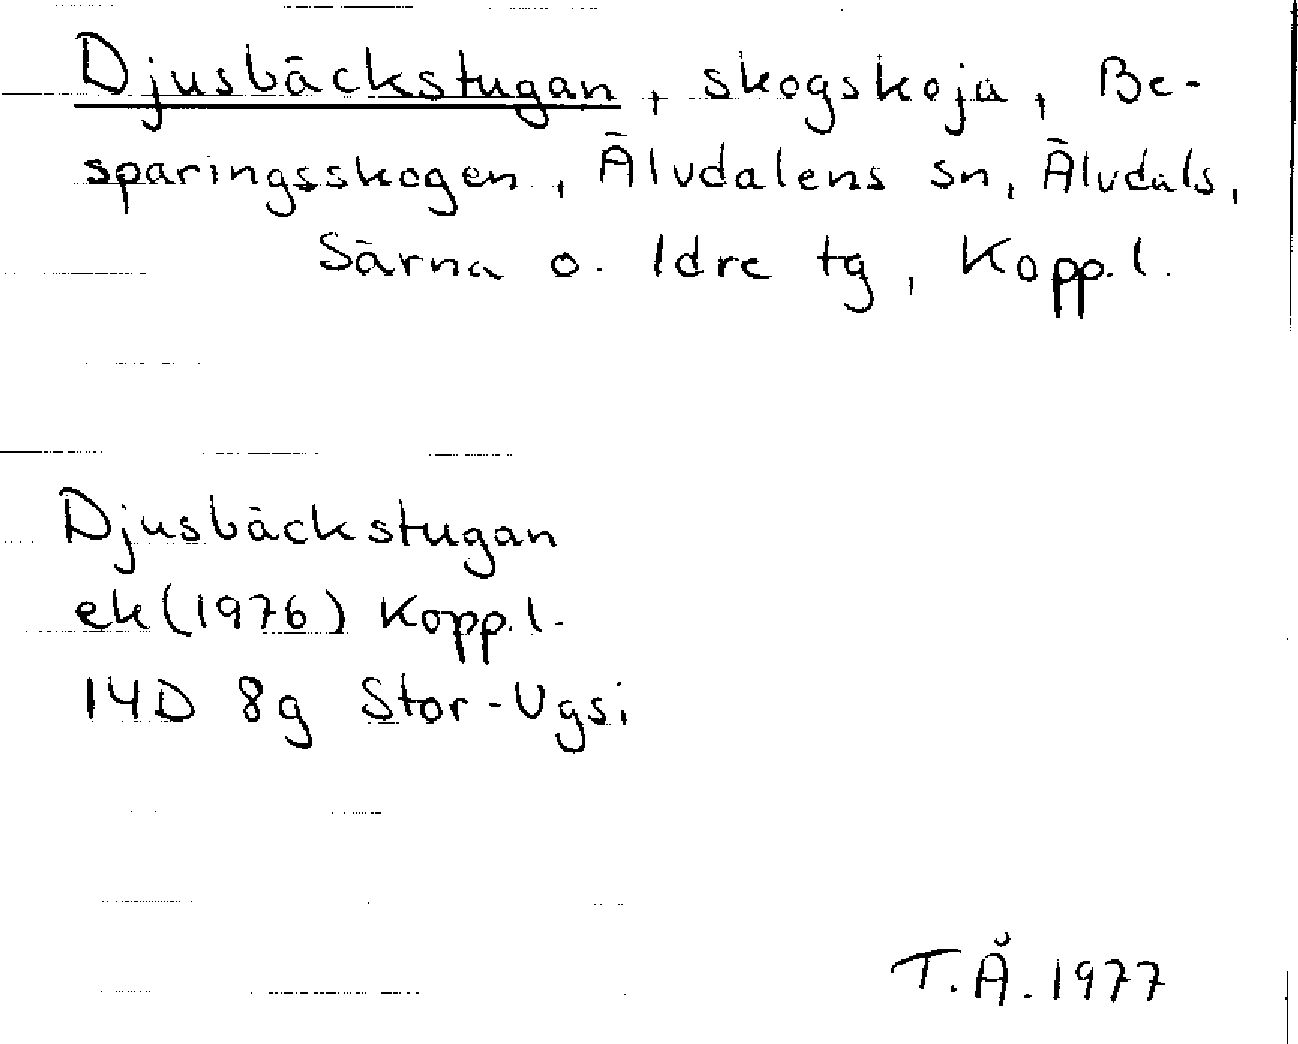 Djusbäckstugan, skogskoja, Be-
sparingsskogen, Älvdalens sn, Älvdals,
Särna o. Idre tg, Kopp.l.
Djusbäckstugan
ek(1976) Kopp.l.
14D 8g Stor-Ugsi
T.Å.1977